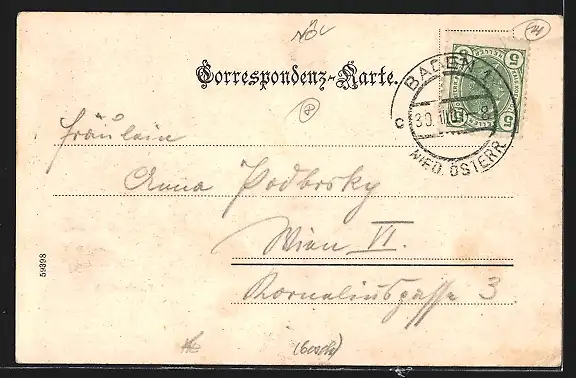 NÖ
24
Correspondenz-Karte.
5 5
BADEN 1
30.
NIED. ÖSTERR.
C
8
Fräulein
Anna Podborsky
Wien VI.
Korneliusgasse 3
59398